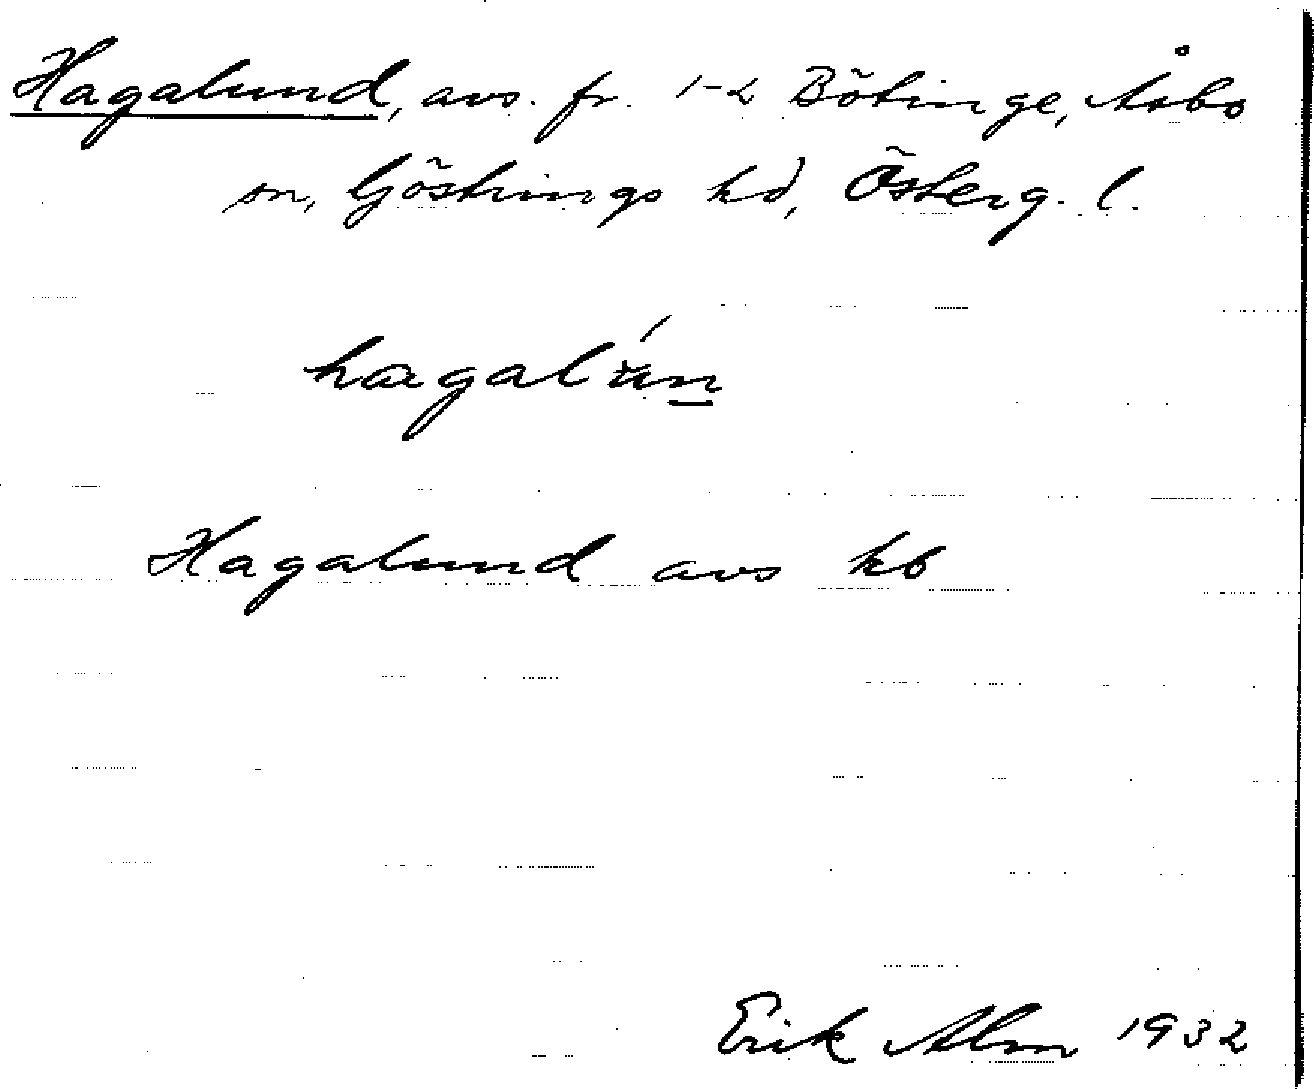 Hagalund, avs. fr. 1-2 Bötinge, Åsbo
sn, Göstrings hd, Österg. l.
hagalún
Hagalund avs kb
Erik Alm 1932